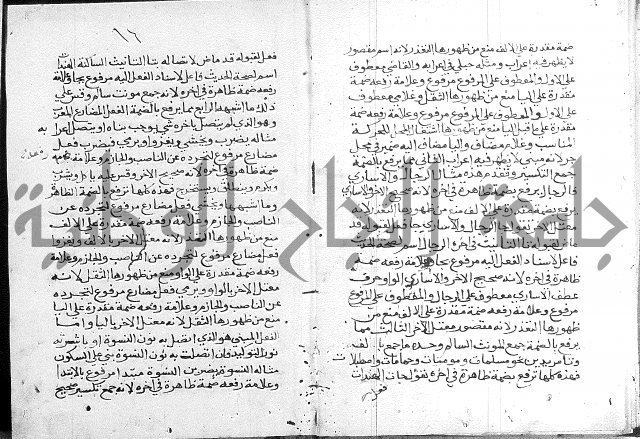 ضمة مقدرة على الالف منع من ظهورها التعذر لانه اسم مقصور
لا يظهر فيه إعراب ومثله حبلى في إعرابه والقاضي معطوف
على الاول والمعطوف على المرفوع مرفوع وعلامة رفعه ضمة
مقدرة على اليا منع من ظهورها الثقل وغلامي معطوف
على الاول والمعطوف على المرفوع مرفوع وعلامة رفعه ضمة
مقدرة على ما قبل اليا منع من ظهورها اشتغال المحل بالحركة
المناسب وغلام مضاف واليا مضاف اليه ضمير في محل
جر لانه مبني لا يظهر فيه إعراب الثاني مما يرفع بالضمة
جمع التكسير وتقدم مثاله الرجال والاسارى
فالرجال يرفع بضمة ظاهرة في اخره لانه صحيح الاخر والاسارى
يرفع بضمة مقدرة على الالف منع من ظهورها التعذر لانه
الرجال والاسارى جا فعل لقبوله قد
التانيث في اخره الرجال اسم لصحة الحديث
فاعل لاسناد الفعل اليه مرفوع بجا وعلامة رفعه ضمة
ظاهرة في اخره لانه صحيح الاخر والاسارى الواو حرف
عطف الاسارى معطوف على الرجال والمعطوف على المرفوع
مرفوع وعلامة رفعه ضمة مقدرة على الالف منع من
ظهورها التعذر لانه مقصور معتل الاخر الثالث مما
يرفع بالضمة جمع المونث السالم وحده ما جمع بالف
وتا مزيدتين نحو مسلمات ومومنات وحمامات واصطبلات
فهذه كلها ترفع بضمة ظاهرة في اخره تقول جات الهندات
فعل
١٦
فعل لقبوله قد ماض لاتصاله بتا التانيث الساكنة الهندات
اسم لصحة الحديث فاعل لاسناد الفعل اليه مرفوع بجا وعلامة
رفعه ضمة ظاهرة في اخره لانه جمع مونث سالم وقس على
ذلك ما اشبهه الرابع مما يرفع بالضمة الفعل المضارع المعرب
وهو الذي لم يتصل باخره شي يوجب بناه او ينقل اعرابه
مثاله يضرب ويخشى ويغزو ويرمي فيضرب فعل
مضارع مرفوع لتجرده عن الناصب والجازم وعلامة رفعه
ضمة ظاهرة في اخره لانه صحيح الاخر وقس عليه
فهذه كلها ترفع بالضمة الظاهرة
وما اشبهها ويخشى فعل مضارع مرفوع لتجرده عن
الناصب والجازم وعلامة رفعه ضمة مقدرة على الالف
منع من ظهورها التعذر لانه معتل الاخر بالالف ويغزوا
فعل مضارع مرفوع لتجرده عن الناصب والجازم وعلامة
رفعه ضمة مقدرة على الواو منع من ظهورها الثقل لانه
معتل الاخر بالواو ويرمي فعل مضارع مرفوع لتجرده
عن الناصب والجازم وعلامة رفعه ضمة مقدرة على اليا
منع من ظهورها الثقل لانه معتل الاخر باليا واما
الفعل المبني هو الذي اتصل به نون النسوة او باشرته
نون التوكيد فان اتصلت به نون النسوة بني على السكون
مثاله النسوة يضربن النسوة مبتدا مرفوع بالابتدا
وعلامة رفعه ضمة ظاهرة في اخره لانه جمع تكسير صحيح
جامعة النجاح الوطنية